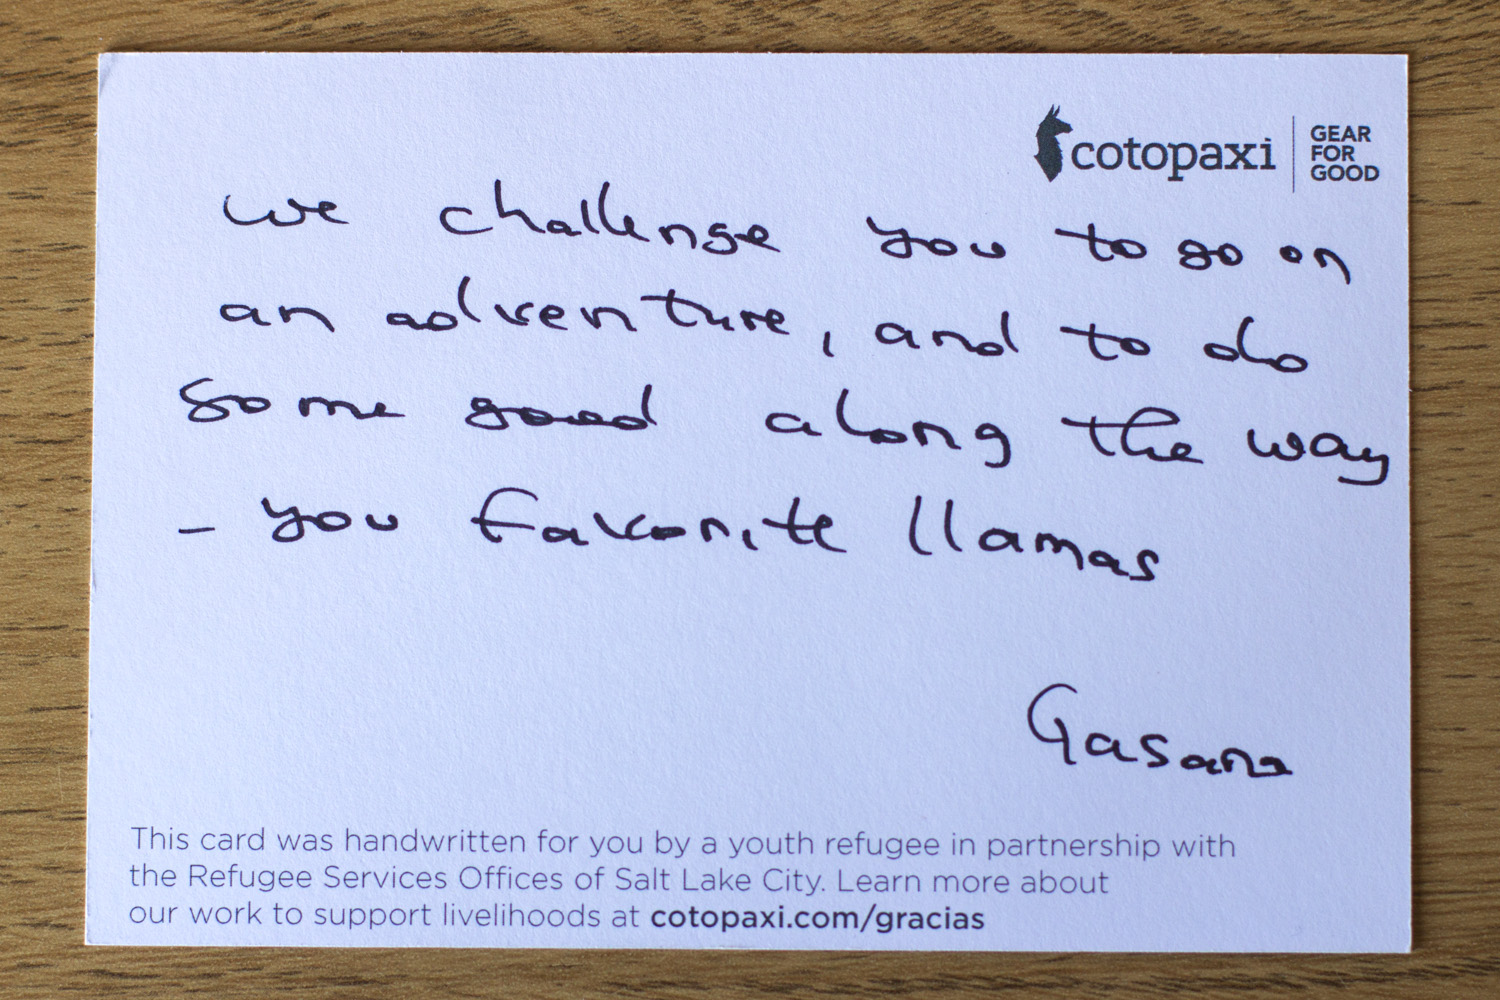 cotopaxi
GEAR
FOR
GOOD
We challenge you to go on
an adventure, and to do
some good along the way
- you favorite llamas
Gasana
This card was handwritten for you by a youth refugee in partnership with
the Refugee Services Offices of Salt Lake City. Learn more about
our work to support livelihoods at cotopaxi.com/gracias